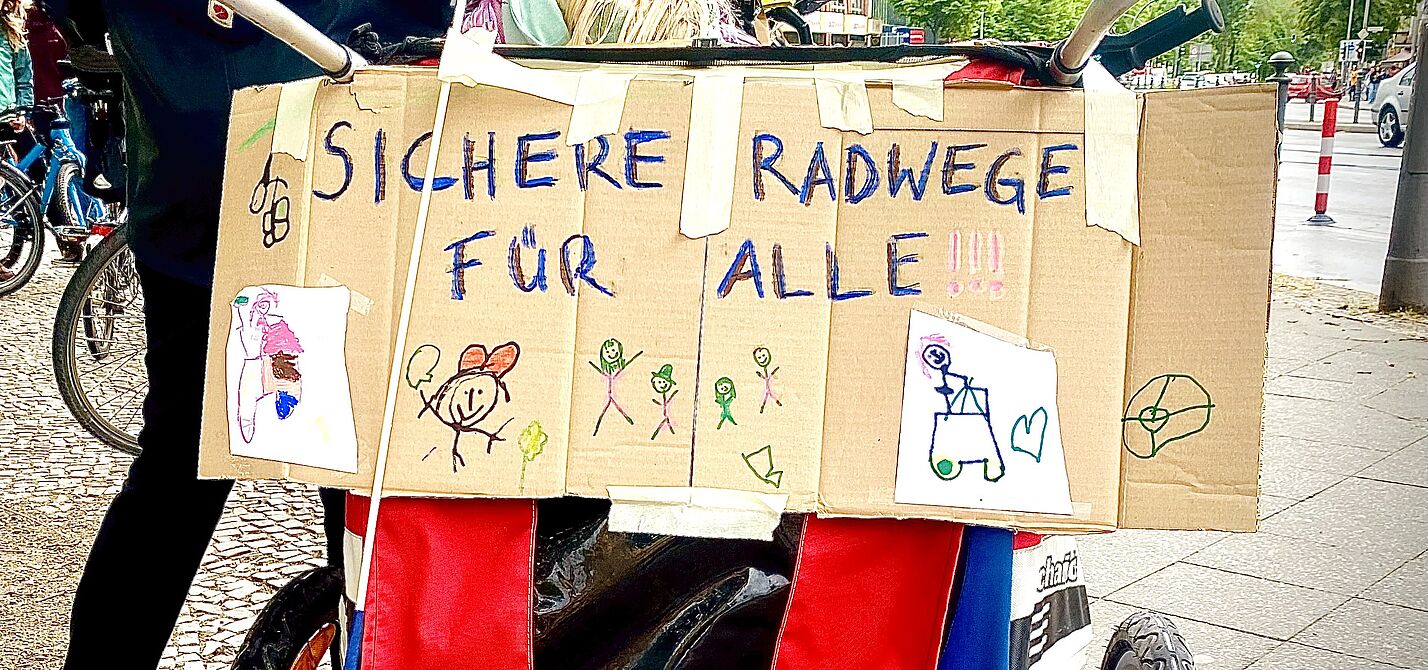 SICHERE RADWEGE
FÜR ALLE !!!
chariot